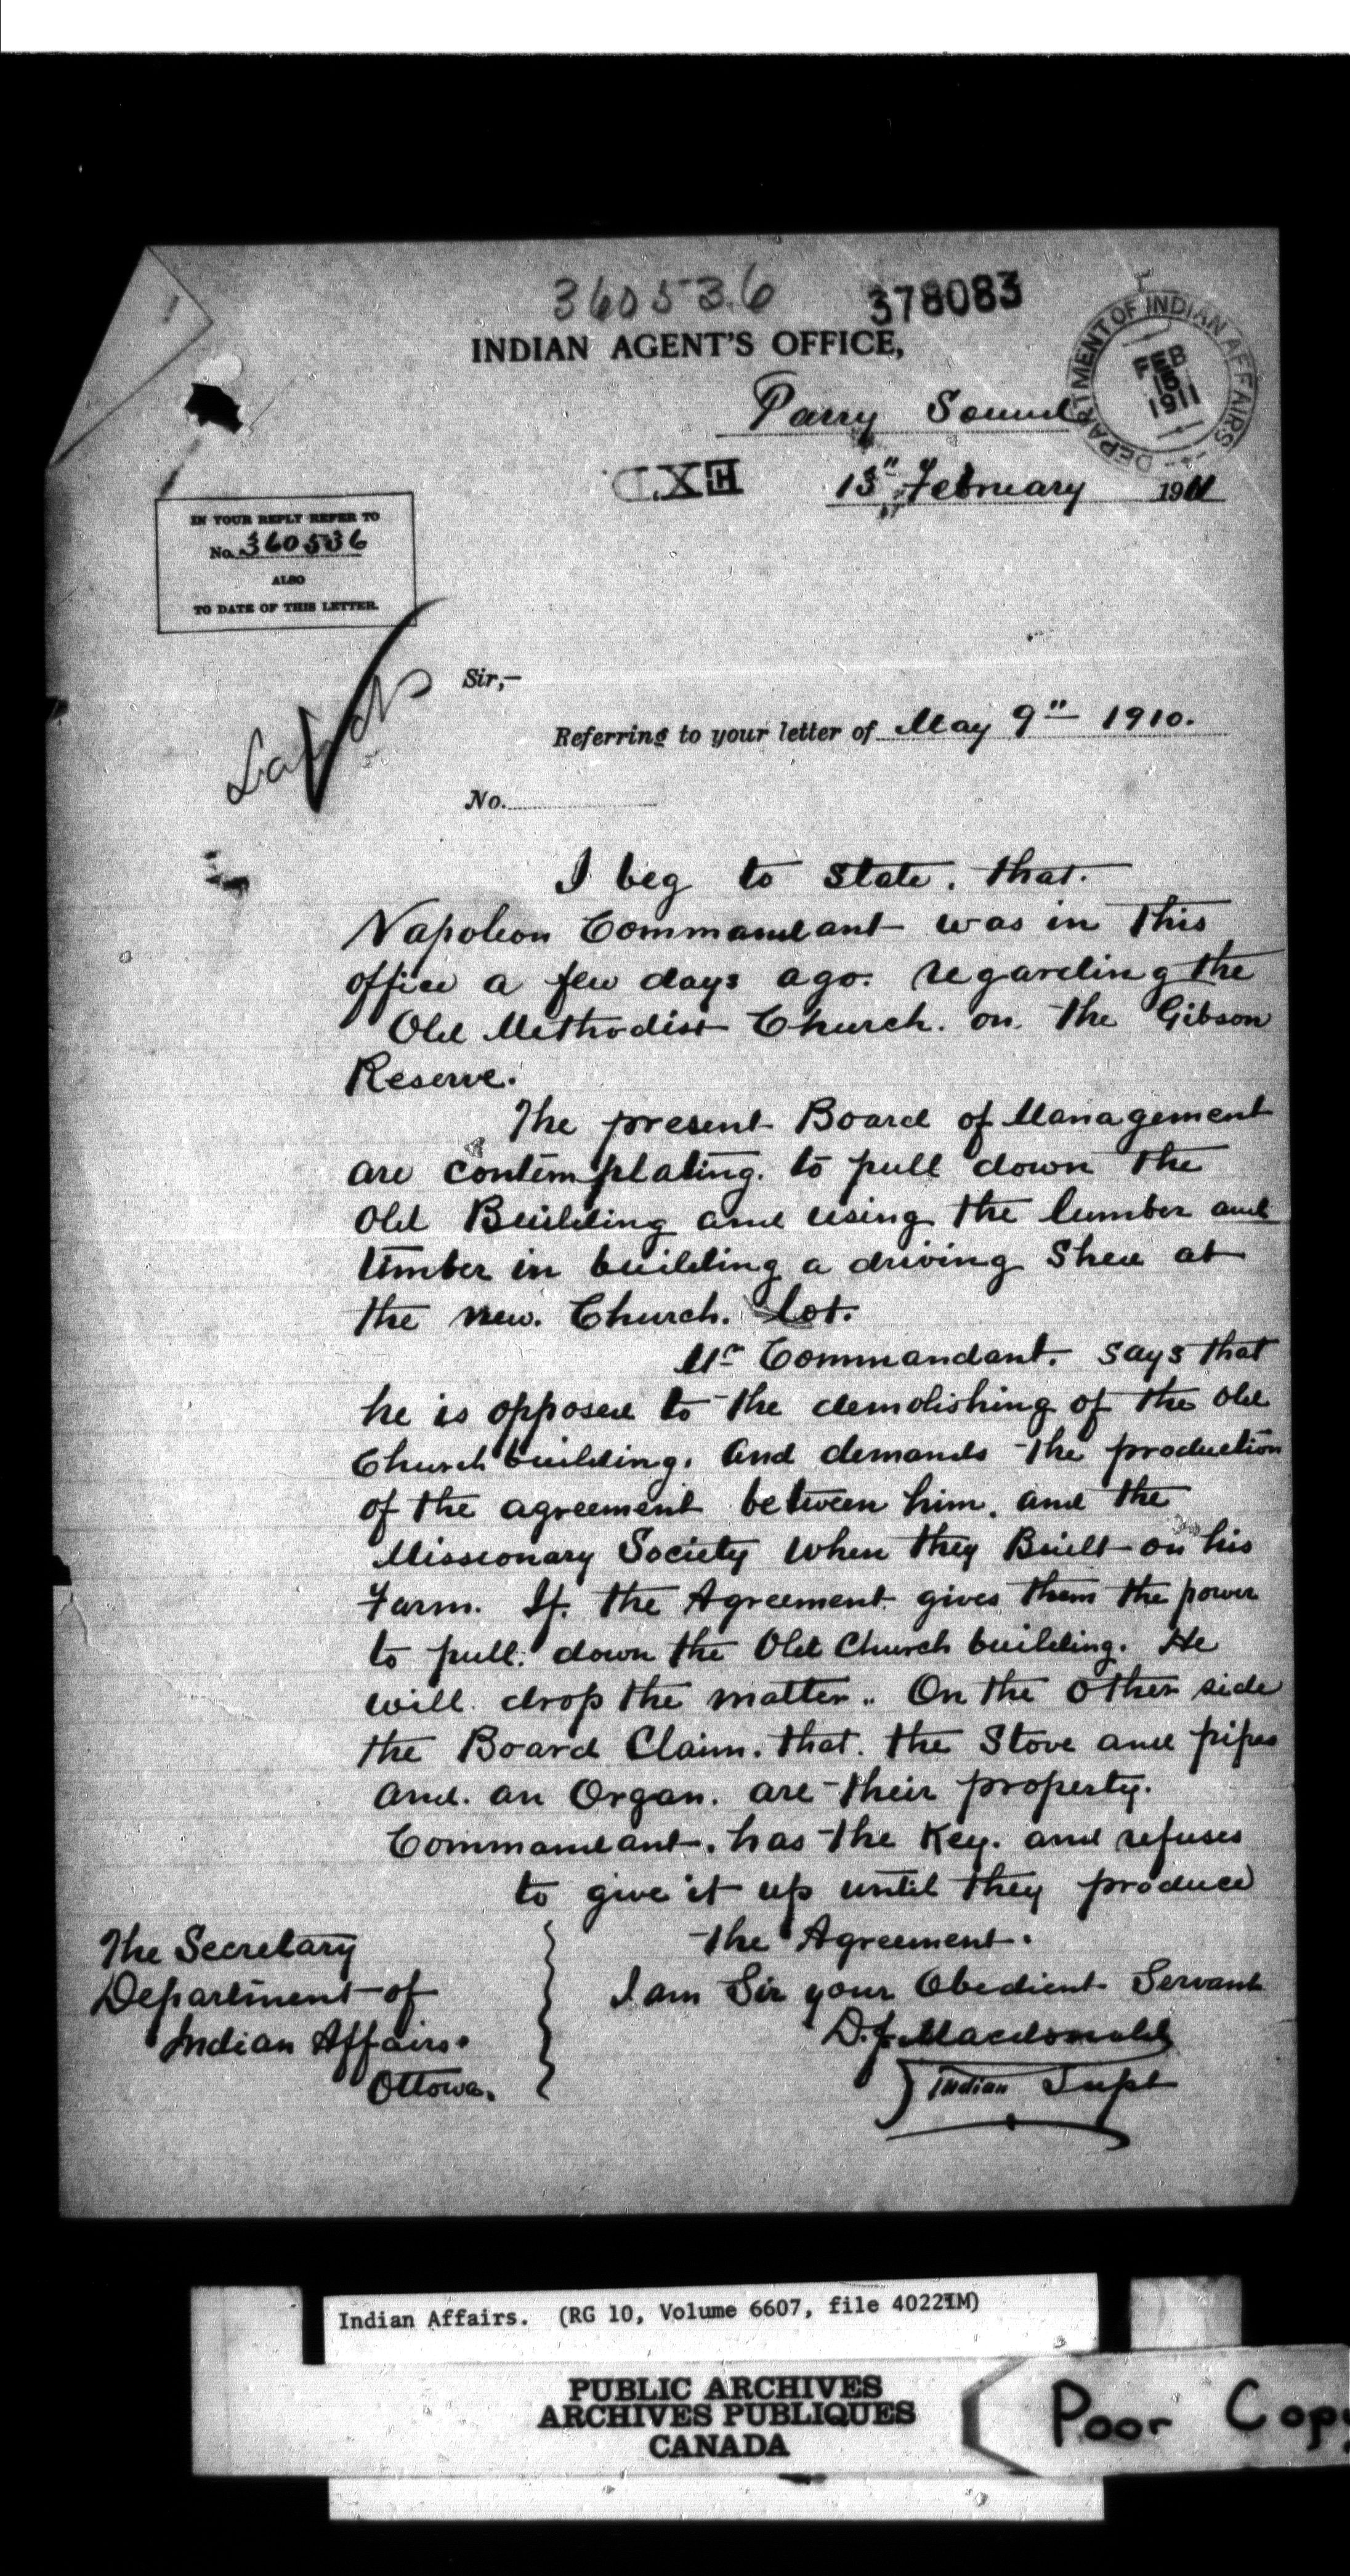 360536 378083
INDIAN AGENT'S OFFICE,
DEPARTMENT OF INDIAN AFFAIRS
FEB
15
1911
Parry Sound
13" February 1911
IN YOUR REPLY REFER TO
No. 360536
ALSO
TO DATE OF THIS LETTER.
Sir,-
Referring to your letter of May 9" 1910.
No.
I beg to state. that.
Napoleon Commandant was in this
office a few days ago. regarding the
Old Methodist Church. on the Gibson
Reserve.
The present Board of Management
are contemplating. to pull down the
Old Building and using the lumber and
timber in building a driving Shed at
the new. Church. lot.
Mr Commandant. says that
he is opposed to the demolishing of the old
Church building. and demands the production
of the agreement between him. and the
Missionary Society when they Built on his
Farm. If. the Agreement gives them the power
to pull. down the Old Church building. He
will drop the matter.. On the other side
the Board Claim. that. the Stove and pipes
and. an Organ. are their property.
Commandant. has the Key. and refuses
to give it up until they produce
the Agreement.
I am Sir your Obedient Servant
D.F. Macdonald
Indian Supt
The Secretary
Department of
Indian Affairs.
Ottowa.
Indian Affairs. (RG 10, Volume 6607, file 4022-1M)
PUBLIC ARCHIVES
ARCHIVES PUBLIQUES
CANADA
Poor Copy